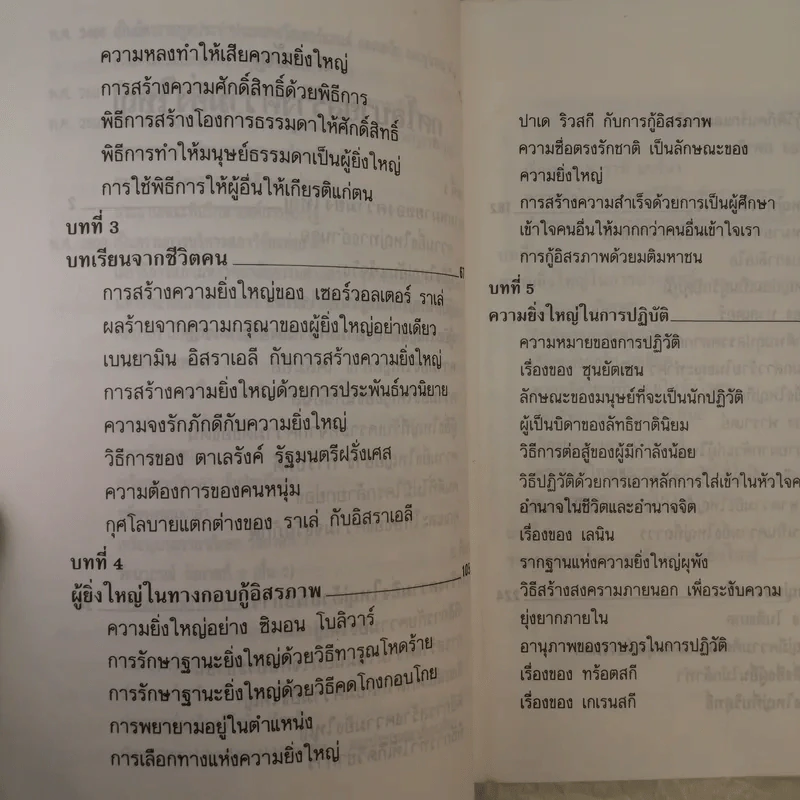 ความหลงทำให้เสียความยิ่งใหญ่
การสร้างความศักดิ์สิทธิ์ด้วยพิธีการ
พิธีการสร้างโองการธรรมดาให้ศักดิ์สิทธิ์
พิธีการทำให้มนุษย์ธรรมดาเป็นผู้ยิ่งใหญ่
การใช้พิธีการให้ผู้อื่นให้เกียรติแก่ตน
บทที่ 3
บทเรียนจากชีวิตคน
การสร้างความยิ่งใหญ่ของ เซอร์วอลเตอร์ ราเล่
ผลร้ายจากความกรุณาของผู้ยิ่งใหญ่อย่างเดียว
เบนยามิน อิสราเอลี กับการสร้างความยิ่งใหญ่
การสร้างความยิ่งใหญ่ด้วยการประพันธ์นวนิยาย
ความจงรักภักดีกับความยิ่งใหญ่
วิธีการของ ตาเลรังค์ รัฐมนตรีฝรั่งเศส
ความต้องการของคนหนุ่ม
กุศโลบายแตกต่างของ ราเล่ กับอิสราเอลี
บทที่ 4
ผู้ยิ่งใหญ่ในทางกอบกู้อิสรภาพ
ความยิ่งใหญ่อย่าง ซิมอน โบลิวาร์
การรักษาฐานะยิ่งใหญ่ด้วยวิธีทารุณโหดร้าย
การรักษาฐานะยิ่งใหญ่ด้วยวิธีคดโกงกอบโกย
การพยายามอยู่ในตำแหน่ง
การเลือกทางแห่งความยิ่งใหญ่
ปาเด ริวสกี กับการกู้อิสรภาพ
ความซื่อตรงรักชาติ เป็นลักษณะของ
ความยิ่งใหญ่
การสร้างความสำเร็จด้วยการเป็นผู้ศึกษา
เข้าใจคนอื่นให้มากกว่าคนอื่นเข้าใจเรา
การกู้อิสรภาพด้วยมติมหาชน
บทที่ 5
ความยิ่งใหญ่ในการปฏิบัติ
ความหมายของการปฏิวัติ
เรื่องของ ซุนยัดเซน
ลักษณะของมนุษย์ที่จะเป็นนักปฏิวัติ
ผู้เป็นบิดาของลัทธิชาตินิยม
วิธีการต่อสู้ของผู้มีกำลังน้อย
วิธีปฏิวัติด้วยการเอาหลักการใส่เข้าในหัวใจค
อำนาจในชีวิตและอำนาจจิต
เรื่องของ เลนิน
รากฐานแห่งความยิ่งใหญ่ผุพัง
วิธีสร้างสงครามภายนอก เพื่อระงับความ
ยุ่งยากภายใน
อานุภาพของราษฎรในการปฏิวัติ
เรื่องของ ทร้อตสกี
เรื่องของ เกเรนสกี